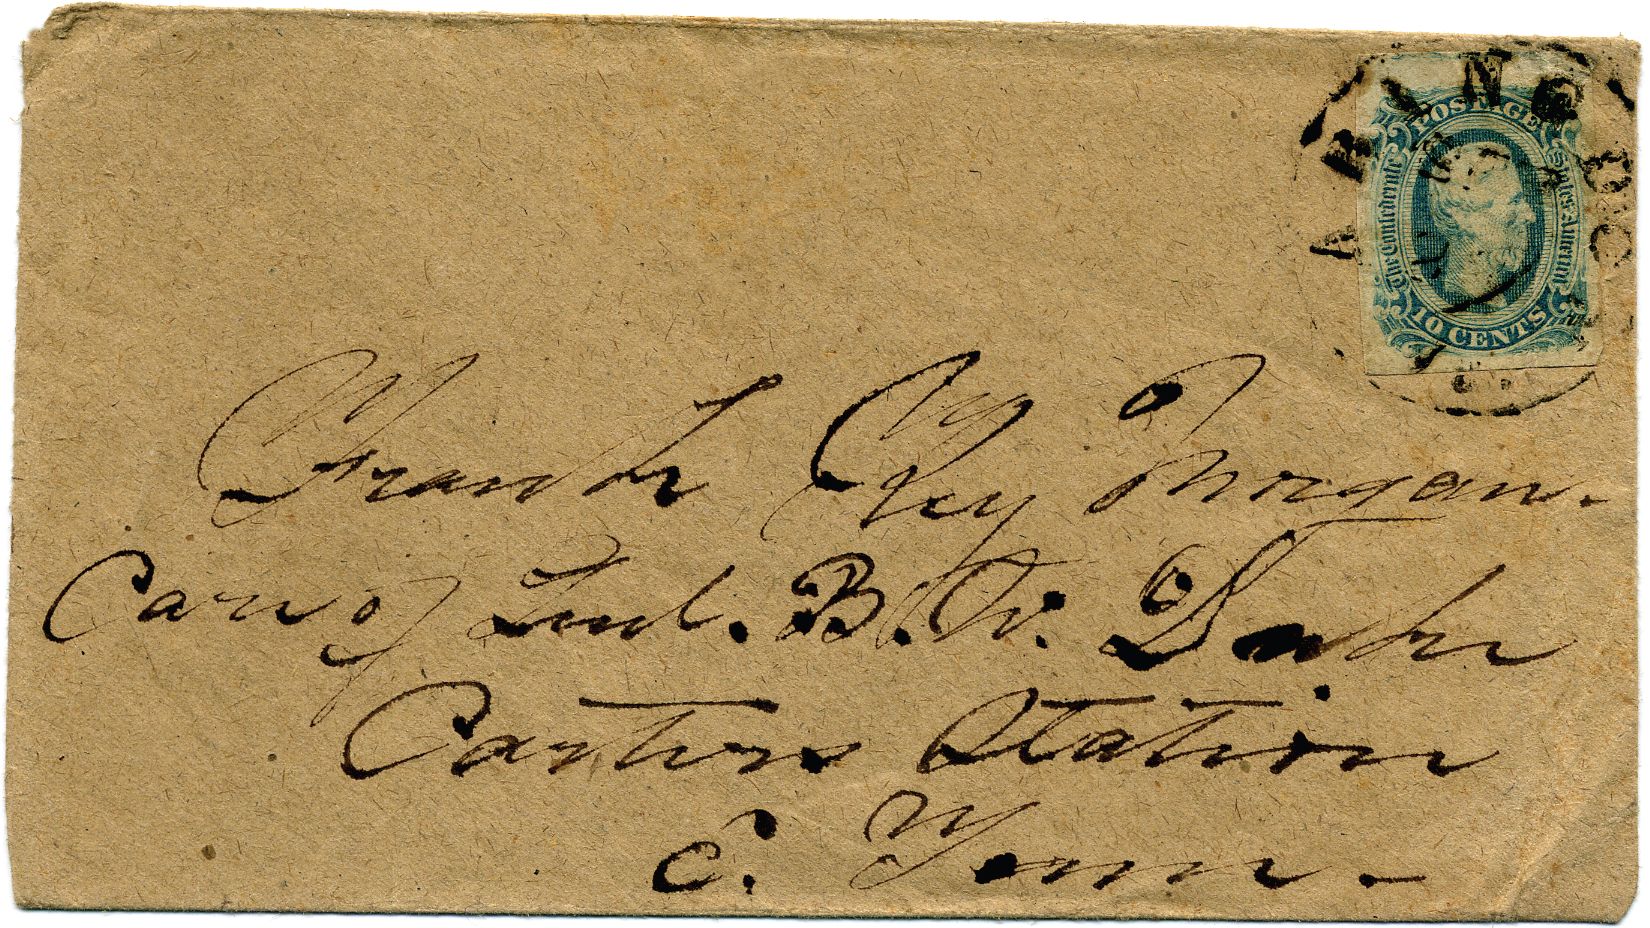 ABINGDO
POSTAGE
The Confederate States of America
10 CENTS
Frank Key Morgan.
Care of B. W.
Carters Station
E. Tenn.